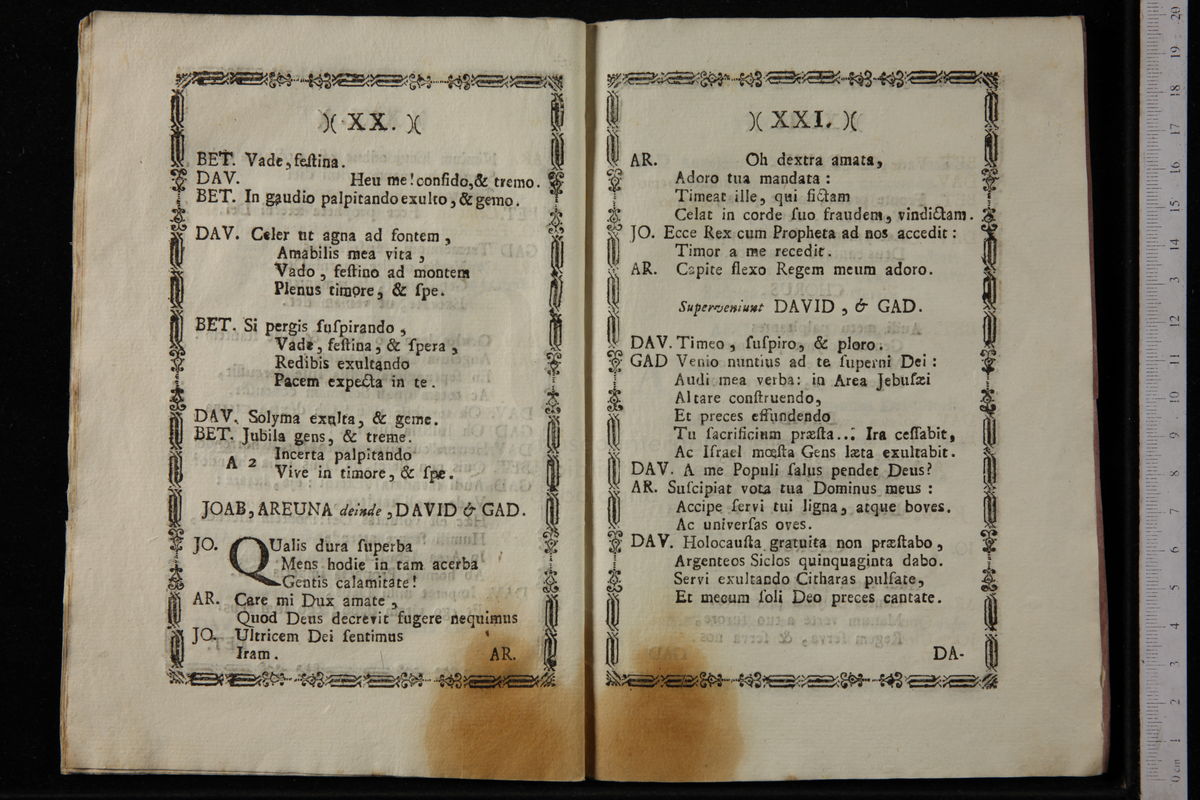 )( XX. )(
BET. Vade, feſtina.
DAV. Heu me! confido, & tremo.
BET. In gaudio palpitando exulto, & gemo.
DAV. Celer ut agna ad fontem,
Amabilis mea vita,
Vado, feſtino ad montem
Plenus timore, & ſpe.
BET. Si pergis ſuſpirando,
Vade, feſtina, & ſpera,
Redibis exultando
Pacem expecta in te.
DAV. Solyma exulta, & geme.
BET. Jubila gens, & treme.
A 2 Incerta palpitando
Vive in timore, & ſpe.
JOAB, AREUNA deinde, DAVID & GAD.
JO. QUalis dura ſuperba
Mens hodie in tam acerba
Gentis calamitate!
AR. Care mi Dux amate,
Quod Deus decrevit fugere nequimus
JO. Ultricem Dei ſentimus
Iram. AR.
)( XXI. )(
AR. Oh dextra amata,
Adoro tua mandata:
Timeat ille, qui fictam
Celat in corde ſuo fraudem, vindictam.
JO. Ecce Rex cum Propheta ad nos accedit:
Timor a me recedit.
AR. Capite flexo Regem meum adoro.
Superveniunt DAVID, & GAD.
DAV. Timeo, ſuſpiro, & ploro.
GAD Venio nuntius ad te ſuperni Dei:
Audi mea verba: in Area Jebuſæi
Altare conſtruendo,
Et preces effundendo
Tu ſacrificium præſta... Ira ceſſabit,
Ac Iſrael mœſta Gens læta exultabit.
DAV. A me Populi ſalus pendet Deus?
AR. Suſcipiat vota tua Dominus meus:
Accipe ſervi tui ligna, atque boves.
Ac univerſas oves.
DAV. Holocauſta gratuita non præſtabo,
Argenteos Siclos quinquaginta dabo.
Servi exultando Citharas pulſate,
Et mecum ſoli Deo preces cantate.
DA-
0 cm 1 2 3 4 5 6 7 8 9 10 11 12 13 14 15 16 17 18 19 20